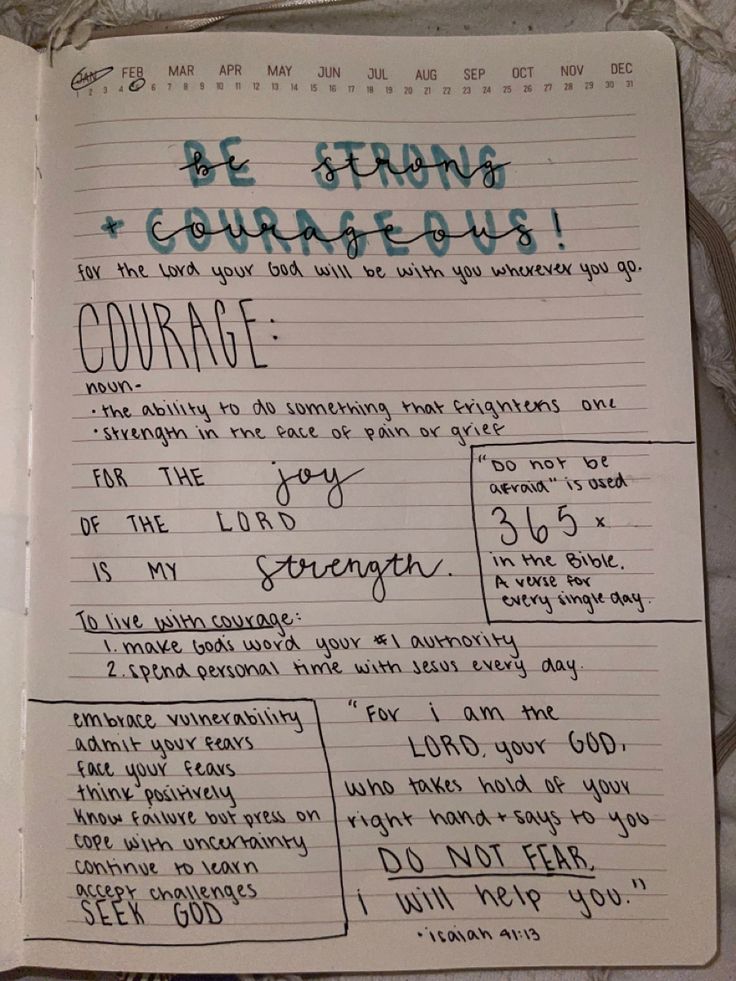 JAN FEB MAR APR MAY JUN JUL AUG SEP OCT NOV DEC
1 2 3 4 5 6 7 8 9 10 11 12 13 14 15 16 17 18 19 20 21 22 23 24 25 26 27 28 29 30 31
BE STRONG
be strong
+ COURAGEOUS!
courageous
for the Lord your God will be with you wherever you go.
COURAGE:
noun-
•the ability to do something that frightens one
•strength in the face of pain or grief
FOR THE joy
OF THE LORD
IS MY strength.
"Do not be
afraid" is used
365 x
in the Bible.
A verse for
every single day.
To live with courage:
1. make God's word your #1 authority
2. spend personal time with Jesus every day.
embrace vulnerability
admit your fears
face your fears
think positively
know failure but press on
cope with uncertainty
continue to learn
accept challenges
SEEK GOD
"For i am the
LORD, your GOD,
who takes hold of your
right hand + says to you
DO NOT FEAR,
i will help you."
•isaiah 41:13